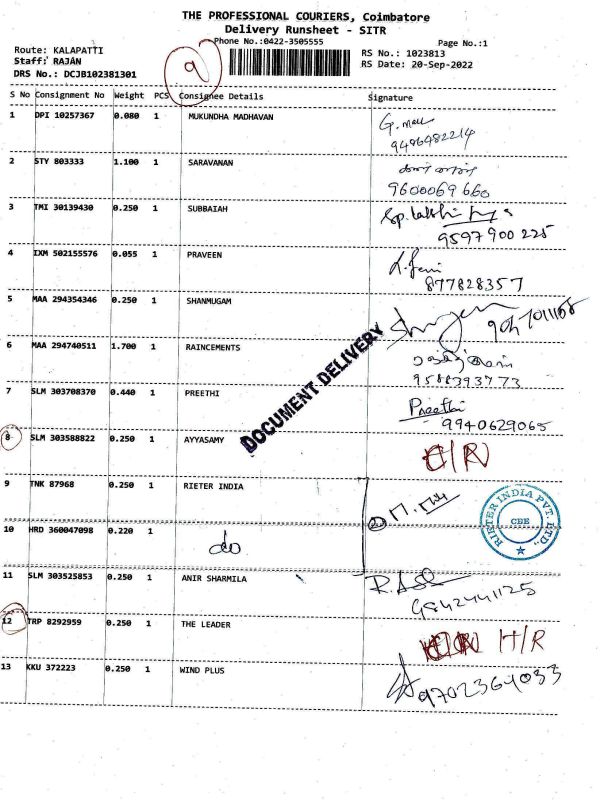 THE PROFESSIONAL COURIERS, Coimbatore
Delivery Runsheet - SITR
Phone No.:0422-3505555
Page No.:1
Route: KALAPATTI
RS No.: 1023813
Staff: RAJAN
RS Date: 20-Sep-2022
DRS No.: DCJB102381301
9
S No Consignment No Weight PCS Consignee Details Signature
1 DPI 10257367 0.080 1 MUKUNDHA MADHAVAN
9486482214
2 STY 803333 1.100 1 SARAVANAN
9600069660
3 TMI 30139430 0.250 1 SUBBAIAH
9597 900 225
4 IXM 502155576 0.055 1 PRAVEEN
877828357
5 MAA 294354346 0.250 1 SHANMUGAM
6 MAA 294740511 1.700 1 RAINCEMENTS
9588393773
7 SLM 303708370 0.440 1 PREETHI Preethi
9940629065
DOCUMENT DELIVERY
8 SLM 303588822 0.250 1 AYYASAMY
9 TNK 87968 0.250 1 RIETER INDIA
RIETER INDIA PVT. LTD., CBE
10 HRD 360047098 0.220 1 do
11 SLM 303525853 0.250 1 ANIR SHARMILA
9842441125
12 TRP 8292959 0.250 1 THE LEADER H/R
13 KKU 372223 0.250 1 WIND PLUS
9702364033